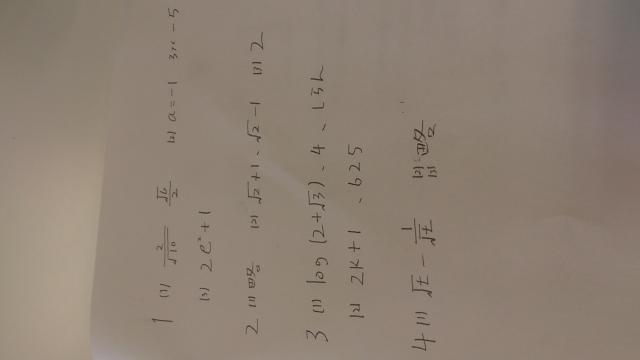 1 (1) 2/√10 √6/2 (2) a=-1 3x-5
(3) 2e^x+1
2 (1) 略 (2) √2+1、√2-1 (3) 2
3 (1) log(2+√3)、4、
(2) 2k+1、625
4 (1) √t - 1/√t (2) (3) 略